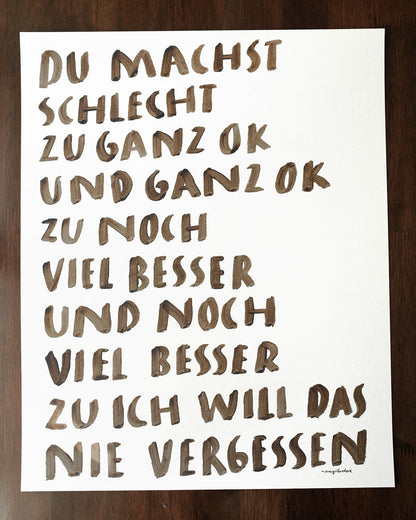 DU MACHST
SCHLECHT
ZU GANZ OK
UND GANZ OK
ZU NOCH
VIEL BESSER
UND NOCH
VIEL BESSER
ZU ICH WILL DAS
NIE VERGESSEN